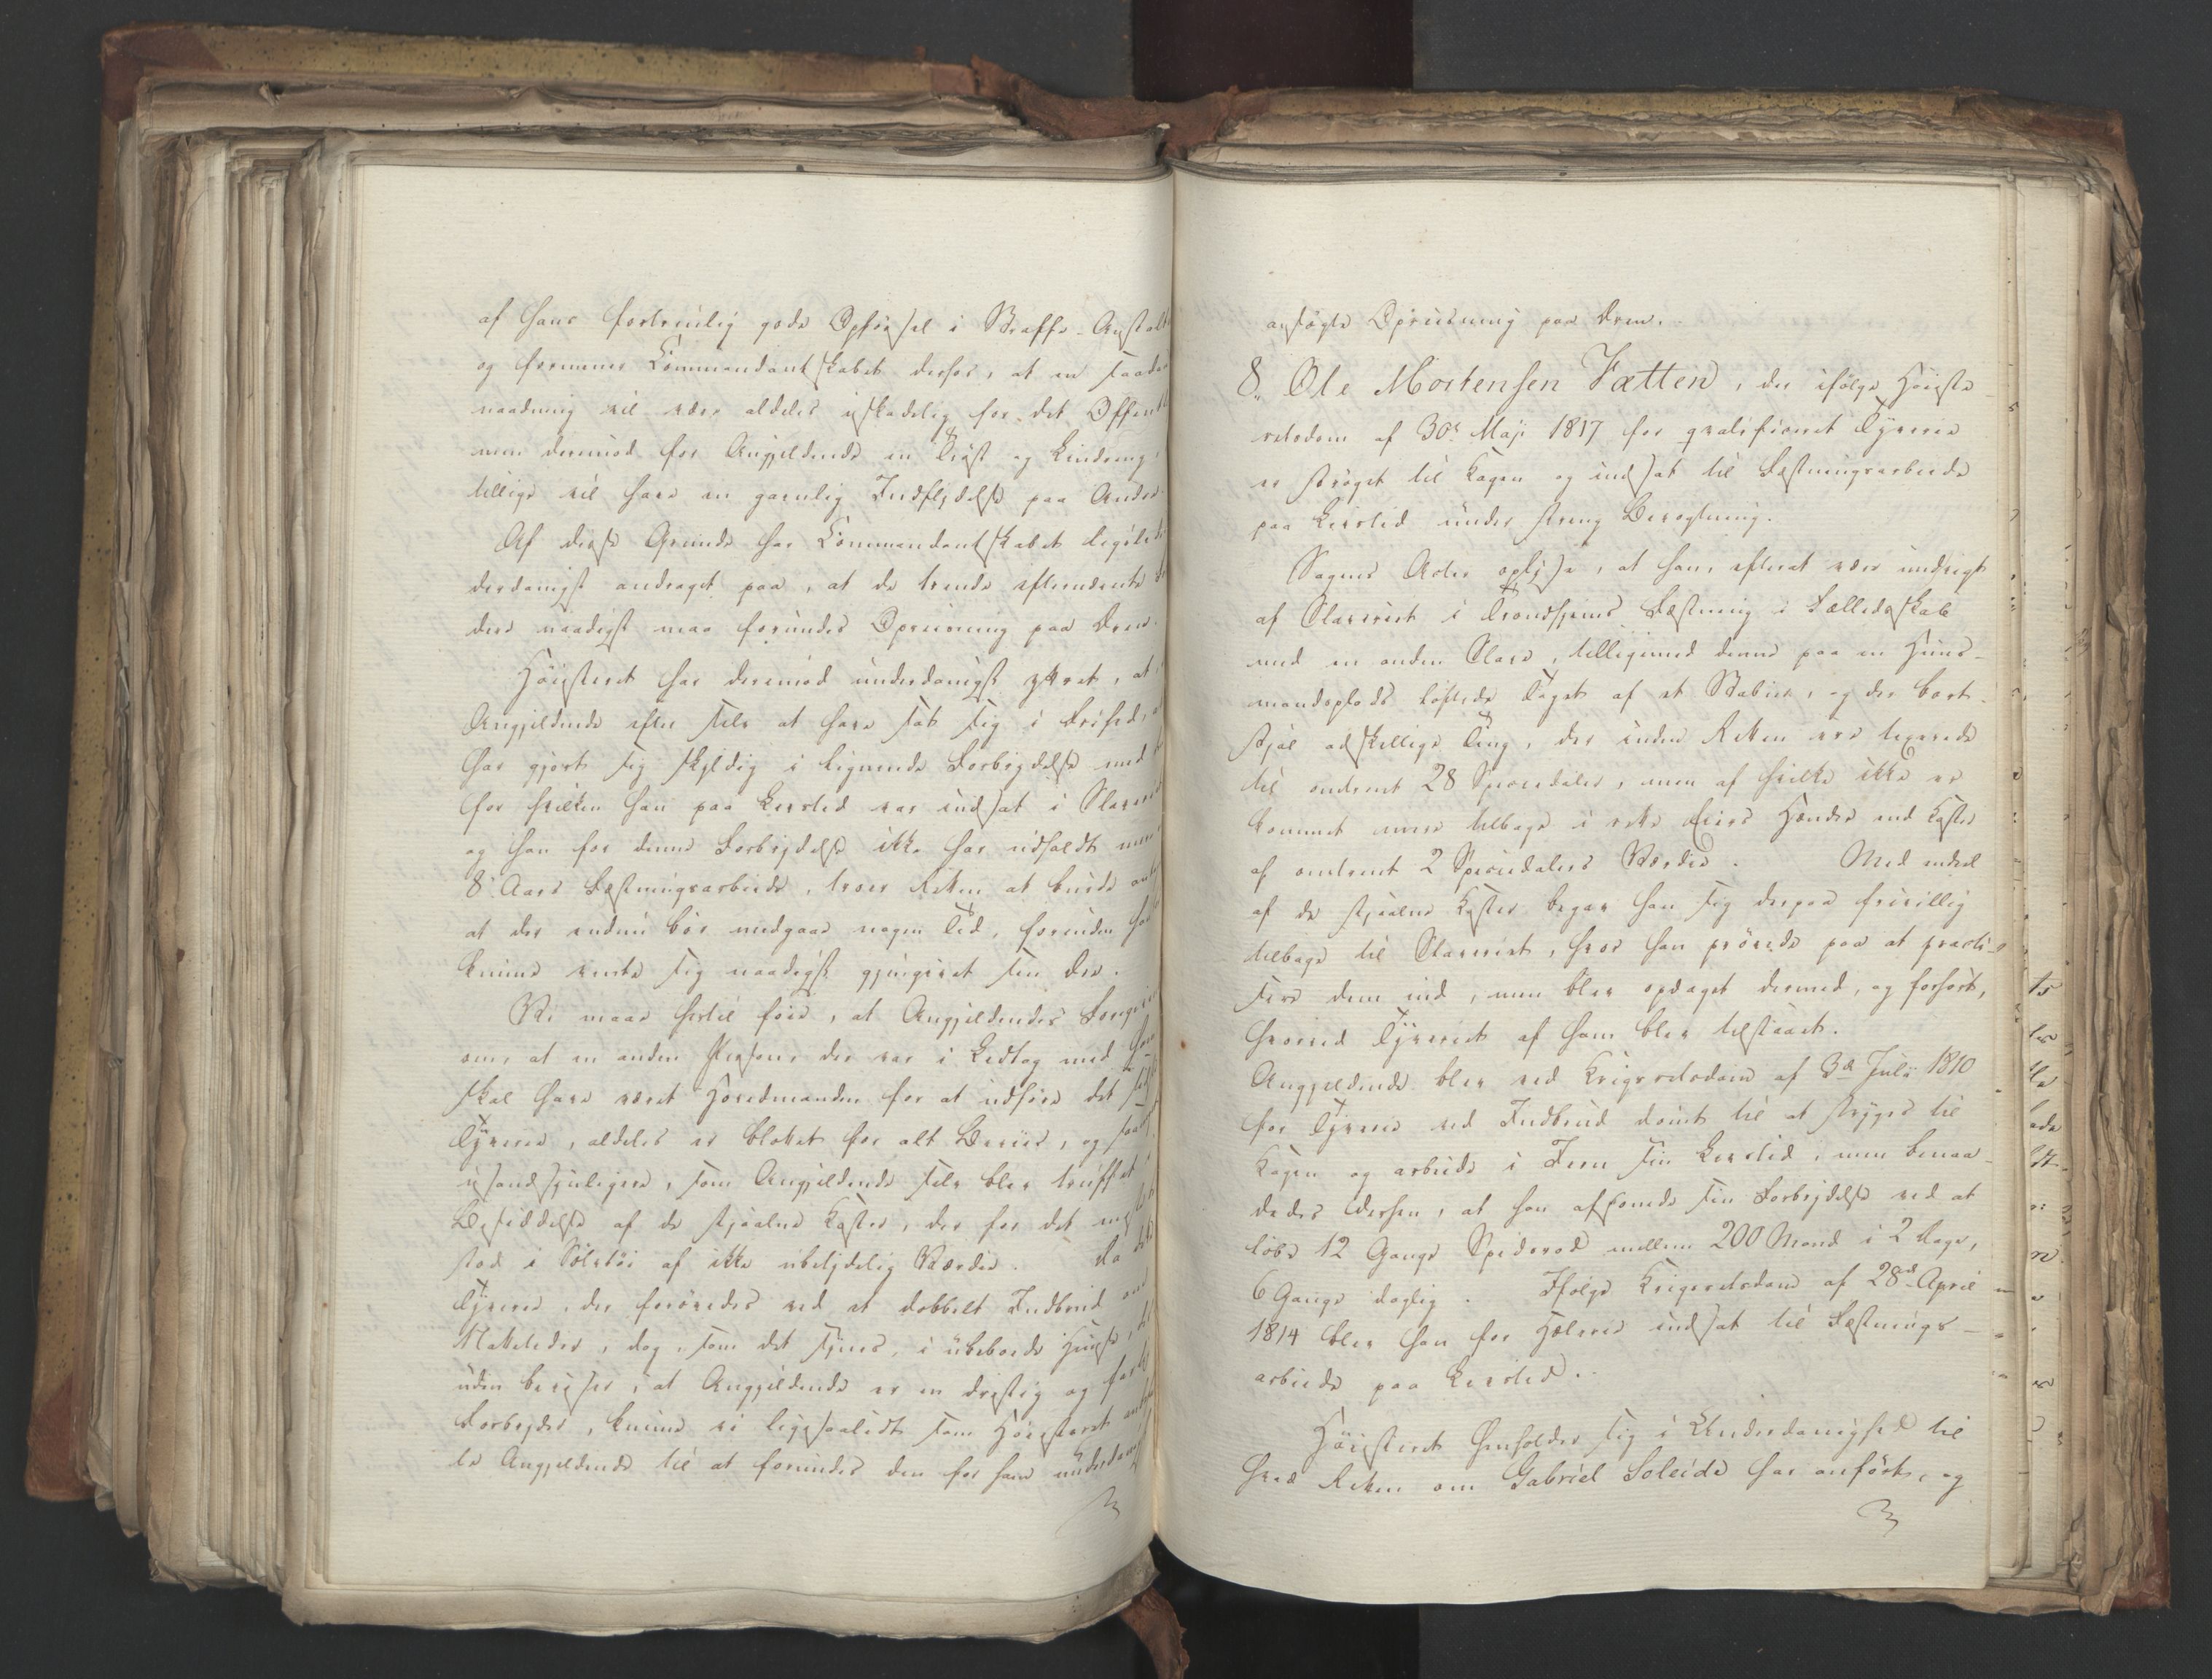 af hans fortrinlig gode Opförsel i Straffe-Anstalt
og formener Commandantskabet derfor, at en saadan
naadning vil være aldeles uskadelig for det Offent
men derimod for Angjeldende en Tröst og Lindring,
tillige vil have en gavnlig Indflydelse paa Andre.
Af disse Grunde har Commandantskabet ligele
derdanigst andraget paa, at de trende
dere naadigst maa forundes Opreisning paa Ære.
Höiesteret har derimod underdanigst yttret, at
Angjeldende efter selv at have sat sig i Frihed,
har gjort sig skyldig i lignende Forbrydelse med
for hvilken han paa Livstid var indsat i Slaveriet
og han for denne Forbrydelse ikke har udholdt mere
8 Aars Fæstningsarbeide, troer Retten at burde
at der endnu bör medgaae nogen Tid, forinden han
kunne vente sig naadigst gjengivet sin Ære.
Vi maae hertil föie, at Angjeldendes Foregivende
om, at en anden Person, der var i Ledtog med ham
skal have været Hovedmanden for at udföre det
Tyverie, aldeles er blottet for alt Beviis, og saa
usandsynligere, som Angjeldende selv blev truffet i
Besiddelse af de stjaalne Koster, der for det meste
stod i Sölvtöi af ikke ubetydelig Værdie. Da dette
Tyverie, der forövedes ved et dobbelt Indbrud
Nattetider, dog, som det synes, i ubeboede Huse,
uden beviser, at Angjeldende er en dristig og
Forbryder, kunne vi ligesaalidt som Höiesteret anbe
le Angjeldende til at forundes den for ham underdanigst
ansögte Opreisning paa Ære.
8. Ole Mortensen Fætten, der ifölge Höieste-
retsdom af 30e Maji 1817 for qvalificeret Tyverie
er ströget til Kagen og indsat til Fæstningsarbeide
paa Livstid under streng Bevogtning.
Sagens Acter oplyse, at han, efterat være undveget
af Slaveriet i Trondhjems Fæstning i Fælledsskab
med en anden Slave, tilligemed denne paa en Huus-
mandsplads löftede Taget af et Stabur, og der bort-
stjal adskillige Ting, der inden Retten ere taxerede
til omtrent 28 Speciedaler, men af hvilke ikke er
kommet mere tilbage i rette Eiers Hænder end Koster
af omtrent 2 Speciedalers Værdie. Med endeel
af de stjaalne Koster begav han sig derpaa frivillig
tilbage til Slaveriet, hvor han prövede paa at practi-
sere dem ind, men blev opdaget dermed, og forhört,
hvorved Tyveriet af ham blev tilstaaet.
Angjeldende blev ved Krigsretsdom af 3de Julii 1810
for Tyverie ved Indbrud dömt til at stryges til
Kagen og arbeide i Jern sin Livstid, men benaa-
dedes derhen, at han afsonede sin Forbrydelse ved at
löbe 12 Gange Spidsrod mellem 200 Mand i 2 Dage,
6 Gange daglig. Ifölge Krigsretsdom af 28de April
1814 blev han for Hælerie indsat til Fæstnings-
arbeide paa Livstid.
Höiesteret henholder sig i Underdanighed til
hvad Retten om Gabriel Soleide har anfört, og